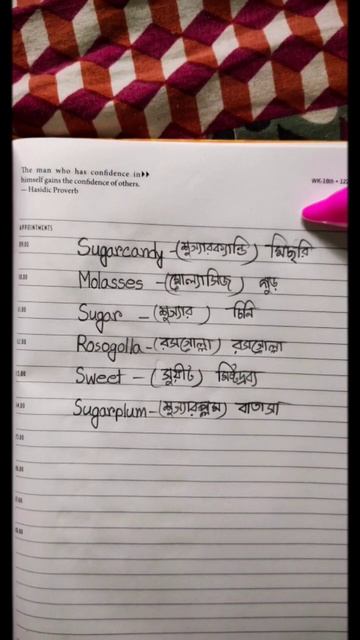 The man who has confidence in
himself gains the confidence of others.
— Hasidic Proverb
WK-18th • 122
APPOINTMENTS
09.00 Sugarcandy - (শুগ্যারক্যান্ডি) মিছরি
10.00 Molasses - (মোল্যাসিজ) গুড়
11.00 Sugar - (শুগ্যার) চিনি
12.00 Rosogolla - (রসগোল্লা) রসগোল্লা
13.00 Sweet - (সুয়ীট) মিষ্টদ্রব্য
14.00 Sugarplum - (শুগ্যারপ্লাম) বাতাসা
15.00
16.00